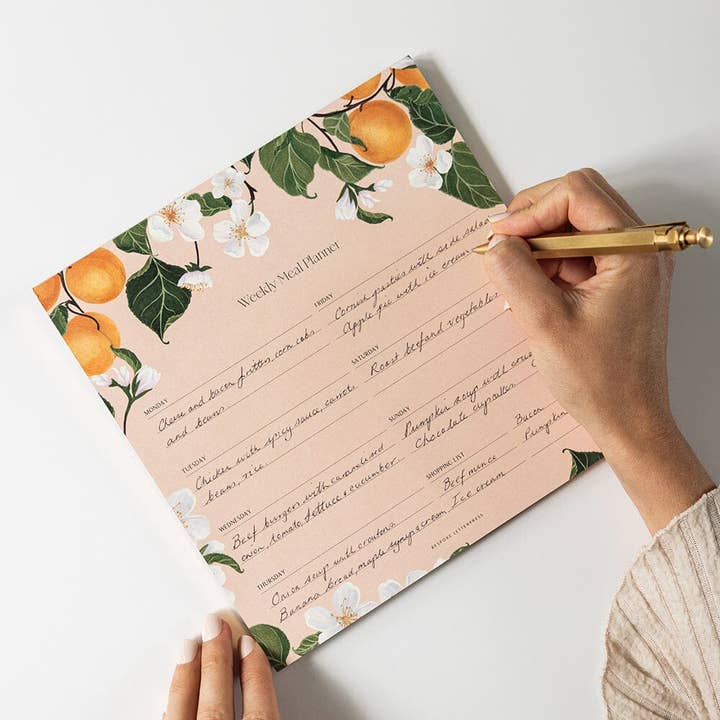 Weekly Meal Planner
MONDAY
Cheese and bacon fritters, corn cobs
and beans
TUESDAY
Chicken with spicy sauce, carrots
beans, rice
WEDNESDAY
Beef burgers with caramelised
onion, tomato, lettuce & cucumber
THURSDAY
Onion soup with croutons
Banana bread, maple syrup & cream
FRIDAY
Cornish pasties with side salad
Apple pie with ice cream
SATURDAY
Roast beef and vegetables
SUNDAY
Pumpkin soup with
Chocolate cupcakes
SHOPPING LIST
Beef mince Bacon
Ice cream Pumpkin
BESPOKE LETTERPRESS